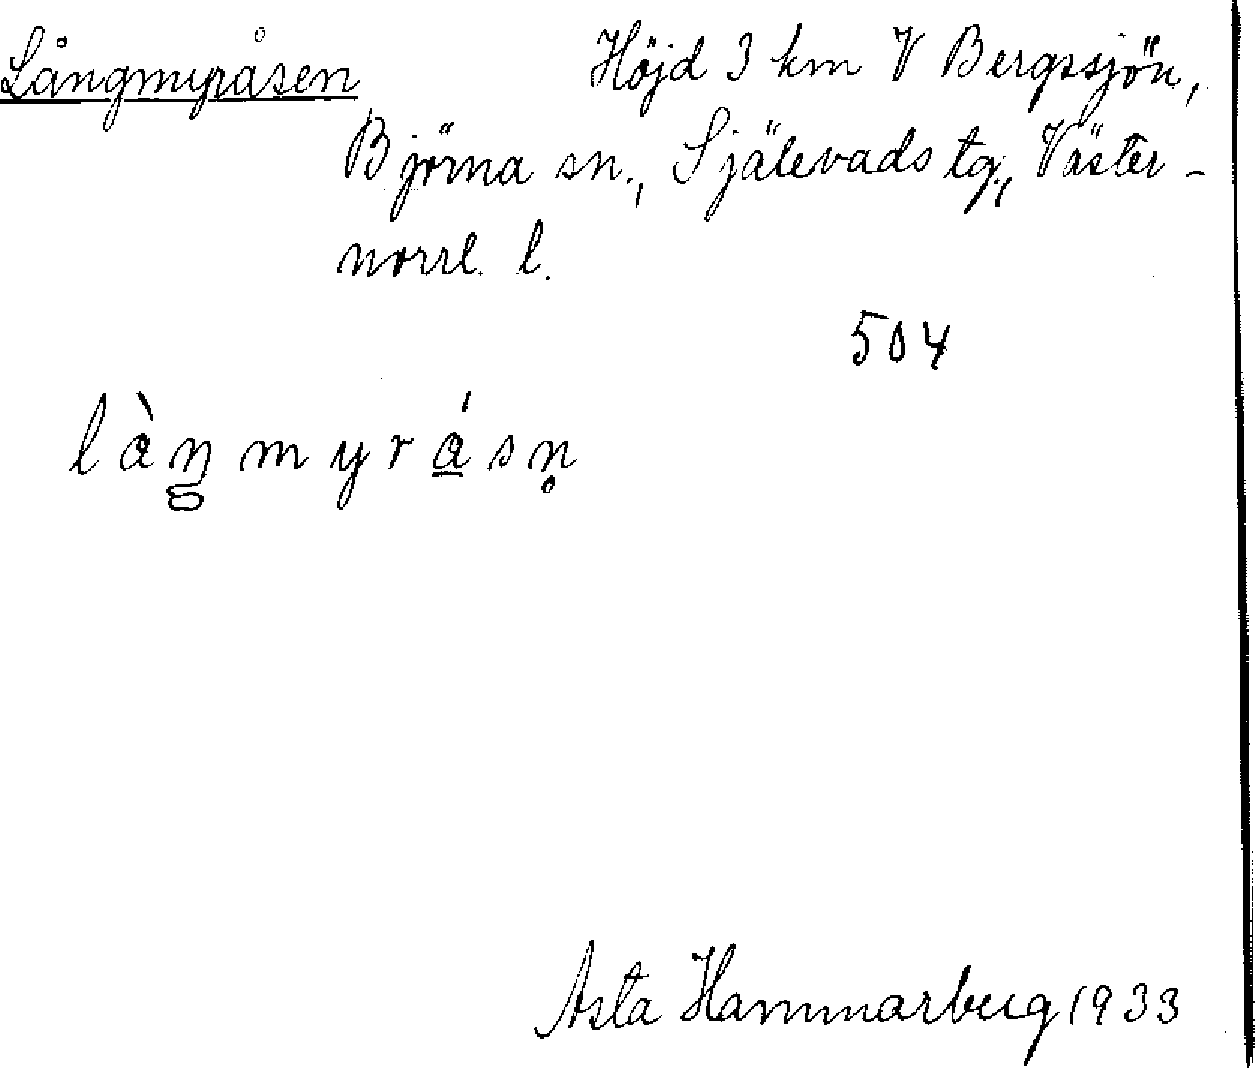 Långmyråsen Höjd 3 km V Bergssjön,
Björna sn., Själevads tg., Väster-
norrl. l.
504
làŋmyrásn̥
Asta Hammarberg 1933